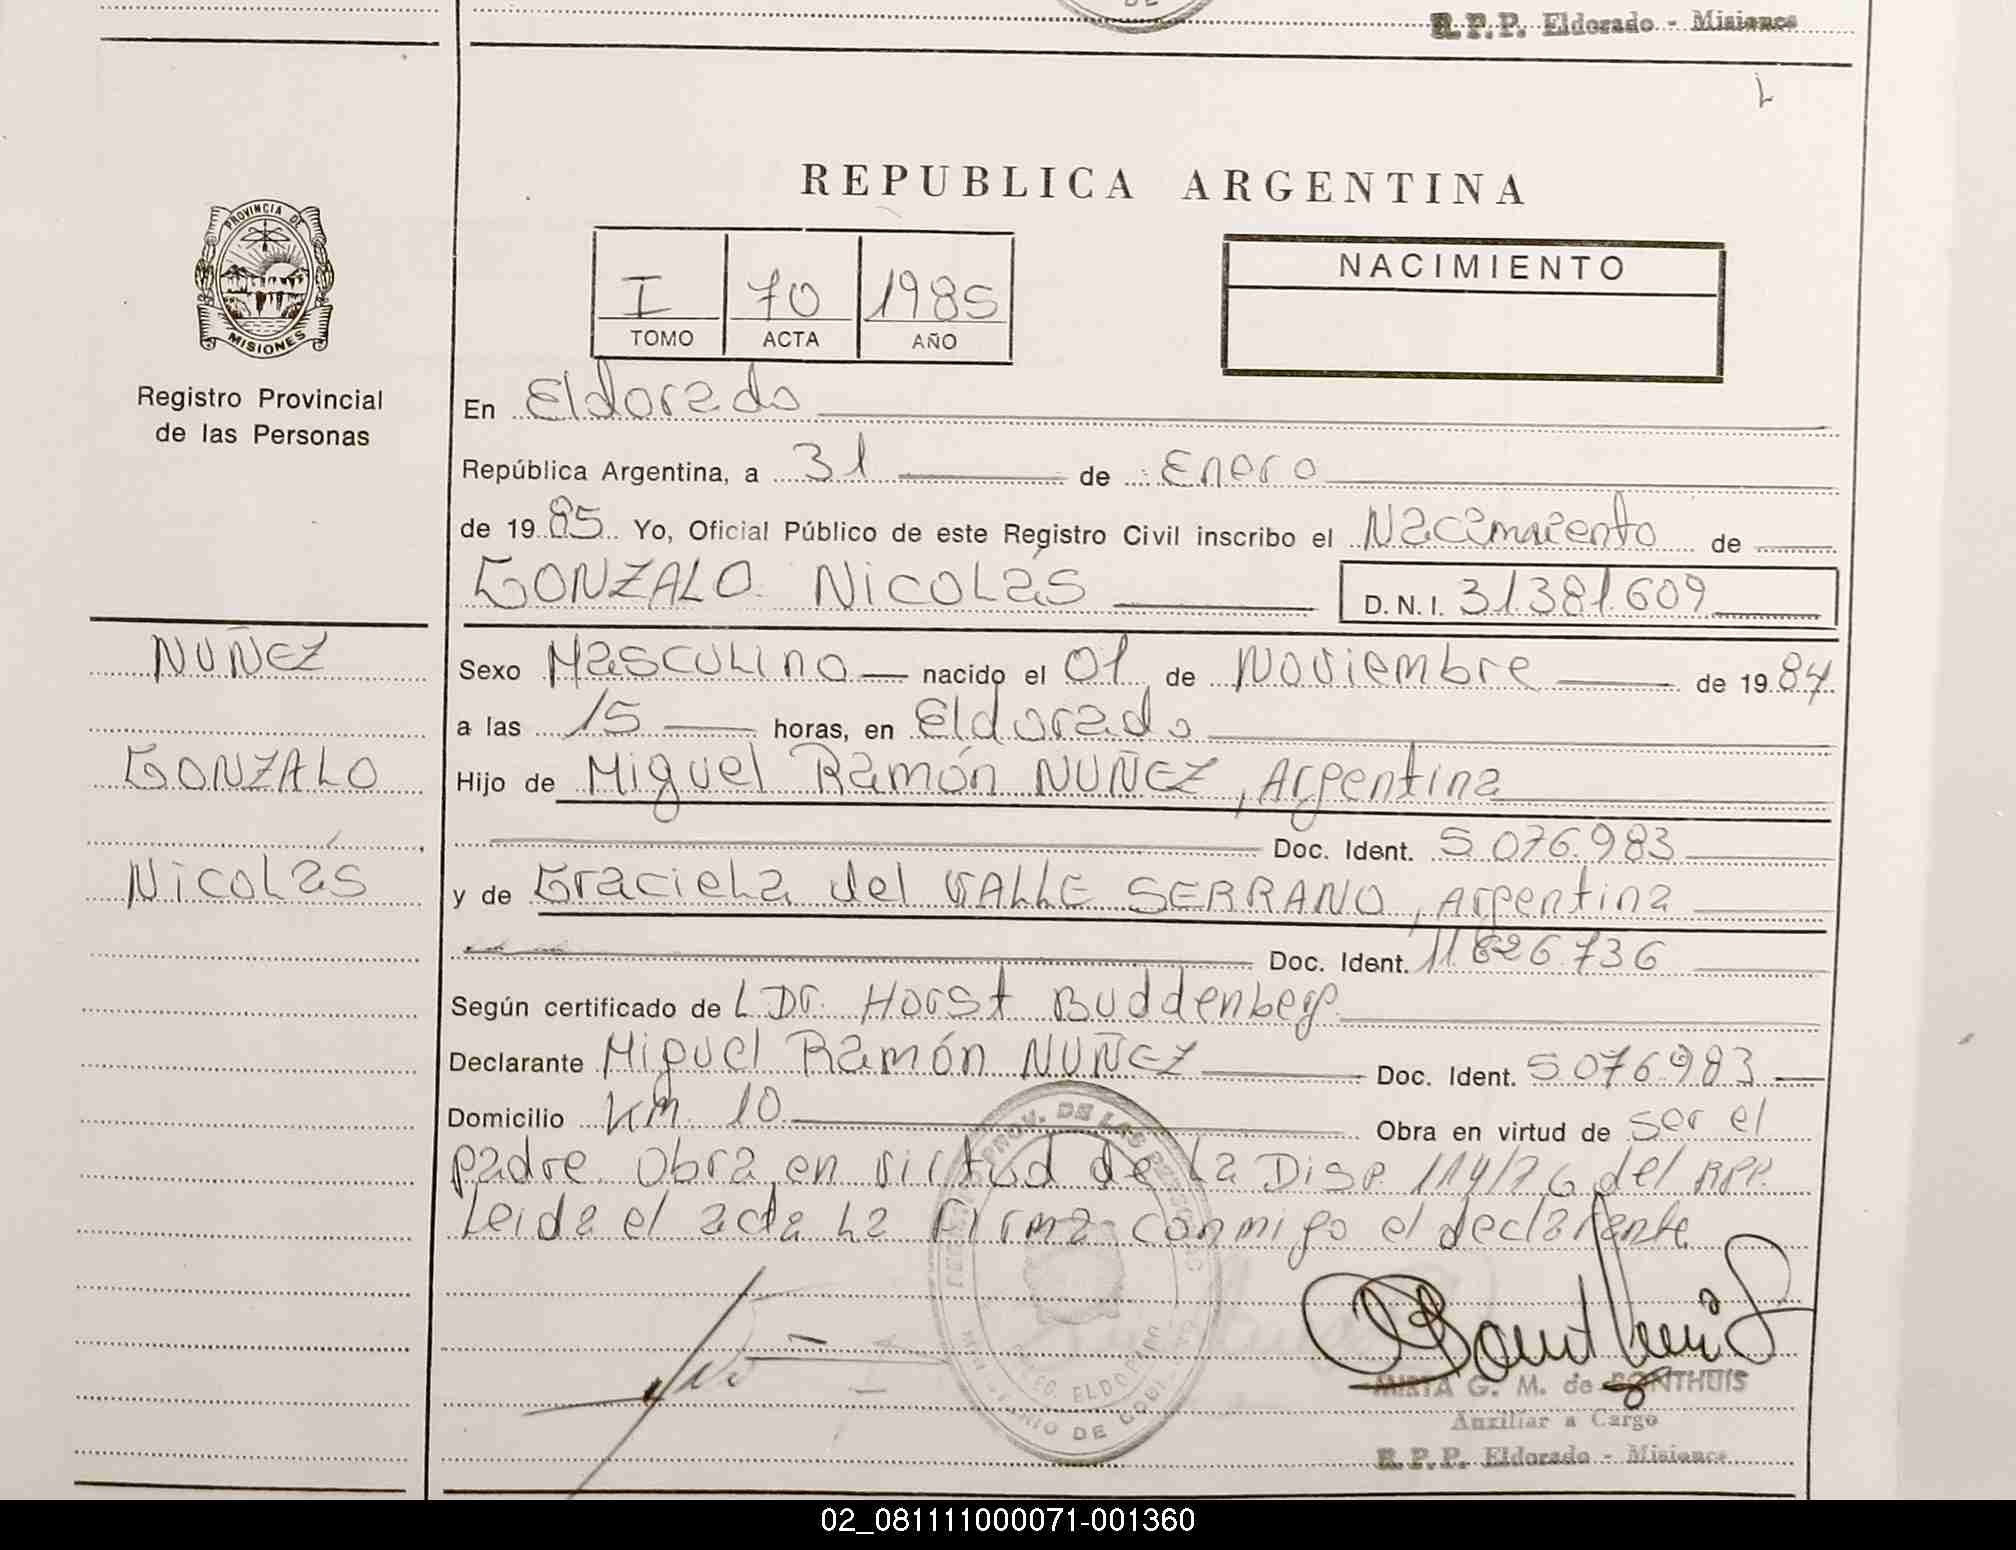 R.P.P. Eldorado - Misiones
L
REPUBLICA ARGENTINA
PROVINCIA DE
MISIONES
Registro Provincial
de las Personas
I 70 1985
TOMO ACTA AÑO
NACIMIENTO
En Eldorado
República Argentina, a 31 de Enero
de 1985 Yo, Oficial Público de este Registro Civil inscribo el Nacimiento de
GONZALO NicoLás D.N.I. 31.381.609
NUÑEZ
GONZALO
NicoLás
Sexo MascuLino nacido el 01 de Noviembre de 1984
a las 15 horas, en Eldorado
Hijo de Miguel Ramón NUÑEZ, Argentina
Doc. Ident. 5.076.983
y de GracieLa del VALLE SERRANO, Argentina
Doc. Ident. 11.826.736
Según certificado de L Dr. Horst Buddenberg
Declarante Miguel Ramón NUÑEZ Doc. Ident. 5.076.983
Domicilio Km. 10 Obra en virtud de ser el
padre. Obra en virtud de La Disp. 114/76 del RPP.
Leida el acta La Firma conmigo el declarante
PROV. DE LAS
ELDORADO
MINISTERIO DE GOBI
MIRTA G. M. de BONTHUIS
Auxiliar a Cargo
R.P.P. Eldorado - Misiones
02_081111000071-001360